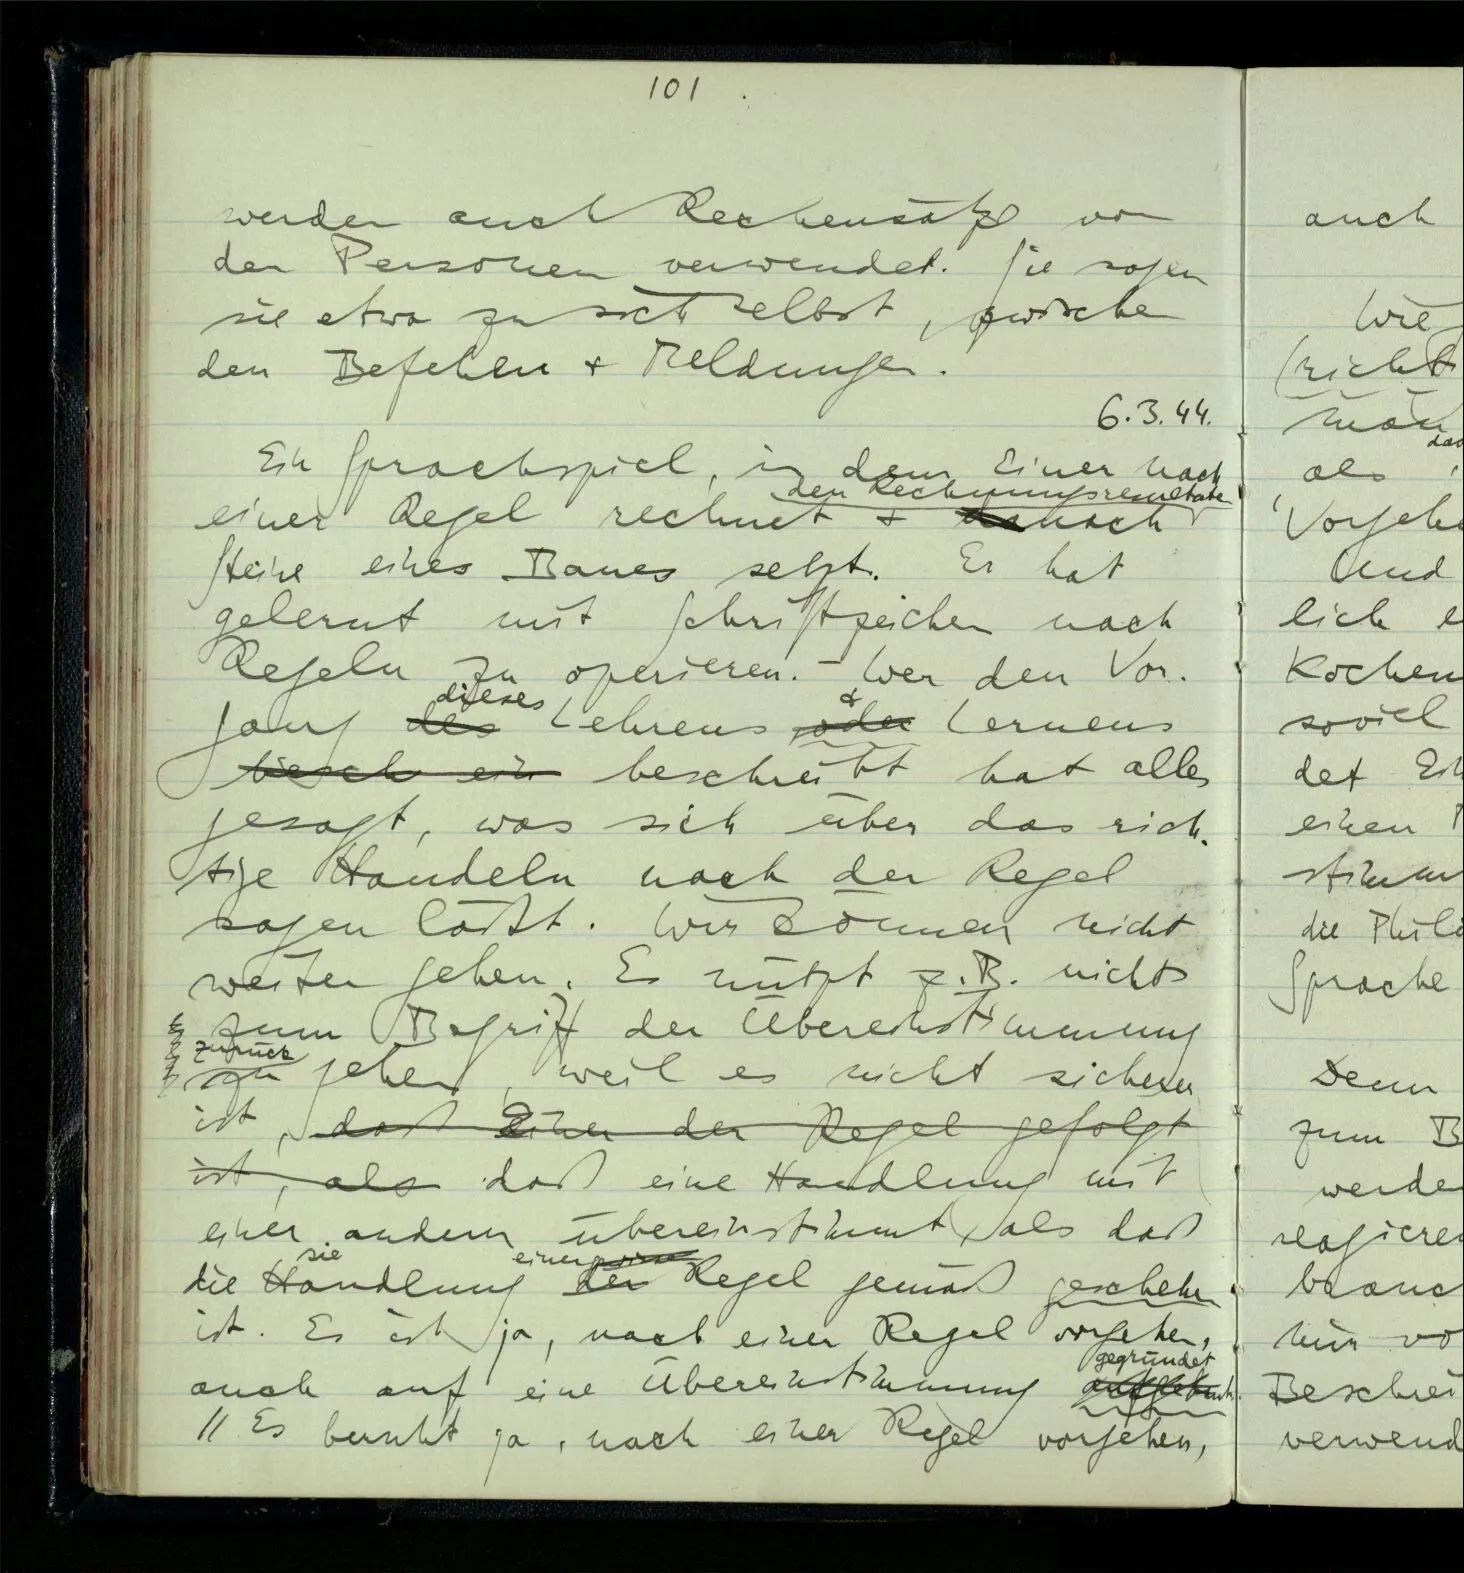 101
werden auch Rechensätze von
den Personen verwendet. Sie sagen
sie etwa zu sich selbst, zwischen
den Befehlen + Meldungen.
6.3.44.
Ein Sprachspiel, in dem Einer nach
den Rechnungsresultaten
einer Regel rechnet + danach
Steine eines Baues setzt. Er hat
gelernt mit Schriftzeichen nach
Regeln zu operieren. – Wer den Vor-
dieses &
gang des Lehrens oder Lernens
beschreibt hat alles
gesagt, was sich über das rich-
tige Handeln nach der Regel
sagen läßt. Wir können nicht
weiter gehen. Es nützt z.B. nichts
zum Begriff der Übereinstimmung
zurück
zu gehen, weil es nicht sicherer
ist, daß Einer der Regel gefolgt
ist, als daß eine Handlung mit
einer andern übereinstimmt, als daß
sie einer
die Handlung der Regel gemäß geschehen
ist. Es ist ja, nach einer Regel vorgehen,
gegründet
auch auf eine Übereinstimmung
// Es beruht ja, nach einer Regel vorgehen,
auch
Wie
(richt
man
das
als
'Vorgehe
Und
lich e
Kochen
soviel
det Ein
einen
stimm
die Philo
Sprache
Denn
zum B
werde
reagieren
brauc
nur vo
Beschrei
verwend